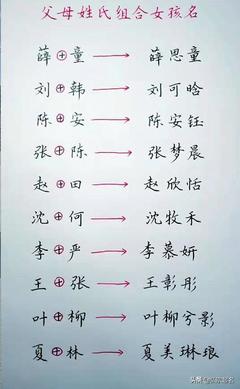 父母姓氏组合女孩名
薛⊕童→薛思童
刘⊕韩→刘可晗
陈⊕安→陈安钰
张⊕陈→张梦晨
赵⊕田→赵欣恬
沈⊕何→沈牧禾
李⊕严→李慕妍
王⊕张→王彰彤
叶⊕柳→叶柳兮影
夏⊕林→夏美琳琅